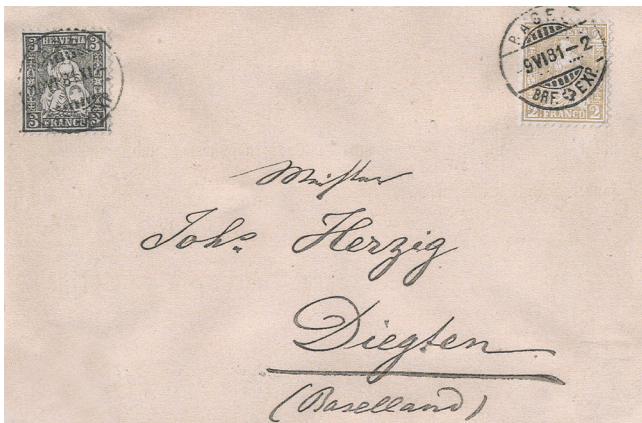 3 HELVETIA 3
3 FRANCO 3
BASEL
9 VI 81–2
BRF. EXP.
2 FRANCO 2
Meister
Johs. Herzig
Diegten
(Baselland)